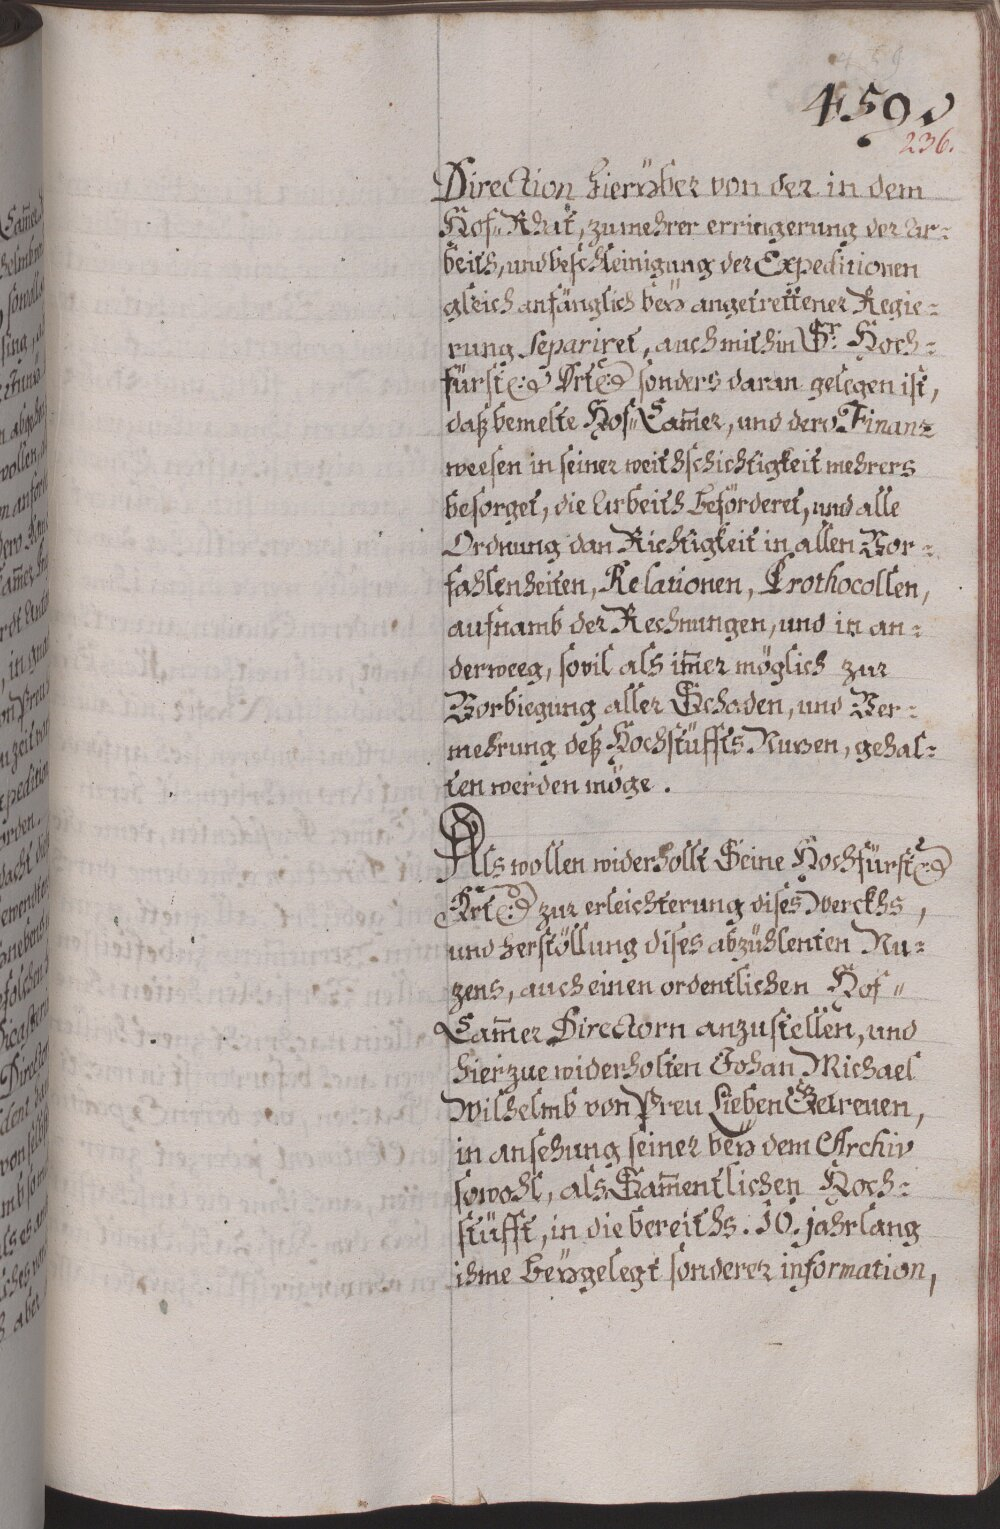 459
459
236.
Direction hierüber von der in dem
Hof„Rhat, zu mehrer erringerung der Ar-:
beith, und beschleinigung der Expeditionen
gleich anfänglich beÿ angetrettener Regie-:
rung separiret, auch mithin Sr: Hoch-:
fürstl: Drtl: sonders daran gelegen ist,
daß bemelte Hof„Cam̃er, und dero Finanz
weesen in seiner weithschichtigkeit mehrers
besorget, die Arbeith beförderet, und alle
Ordnung dan Richtigkeit in allen Vor-:
fahlenheiten, Relationen, Prothocollen,
aufnamb der Rechnungen, und in an-:
derweeg, sovil als im̃er möglich zur
Vorbiegung aller Schaden, und Ver-:
mehrung deß Hochstüffts Nuzen, gehal-:
ten werden möge.
Als wollen widerhollt Seine Hochfürstl:
Drtl: zur erleichterung dises Werckhs,
und herstöllung dises abzühlenten Nu-:
zens, auch einen ordentlichen Hof„
Cam̃er Directorn anzustellen, und
hierzue widerholten Johan Michael
Wilhelmb von Preu Lieben Getreuen,
in ansehung seiner beÿ dem Archiv
sowohl, als Sam̃entlichen Hoch-:
stüfft, in die bereiths. 10. jahr lang
ihme beÿgelegt sonderer information,